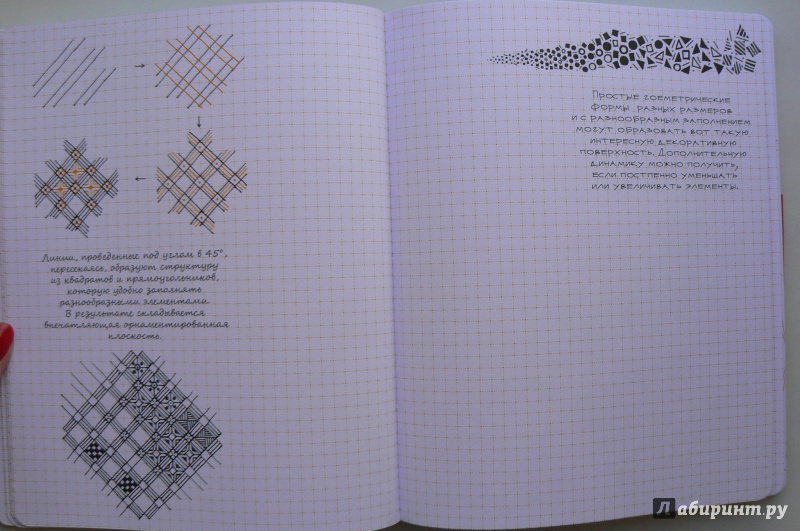 Линии, проведенные под углом в 45°,
пересекаясь, образуют структуру
из квадратов и прямоугольников,
которую удобно заполнять
разнообразными элементами.
В результате складывается
впечатляющая орнаментированная
плоскость.
Простые гоеметрические
формы разных размеров
и с разнообразным заполнением
могут образовать вот такую
интересную декоративную
поверхность. Дополнительную
динамику можно получить,
если постпенно уменьшать
или увеличивать элементы.
Лабиринт.ру